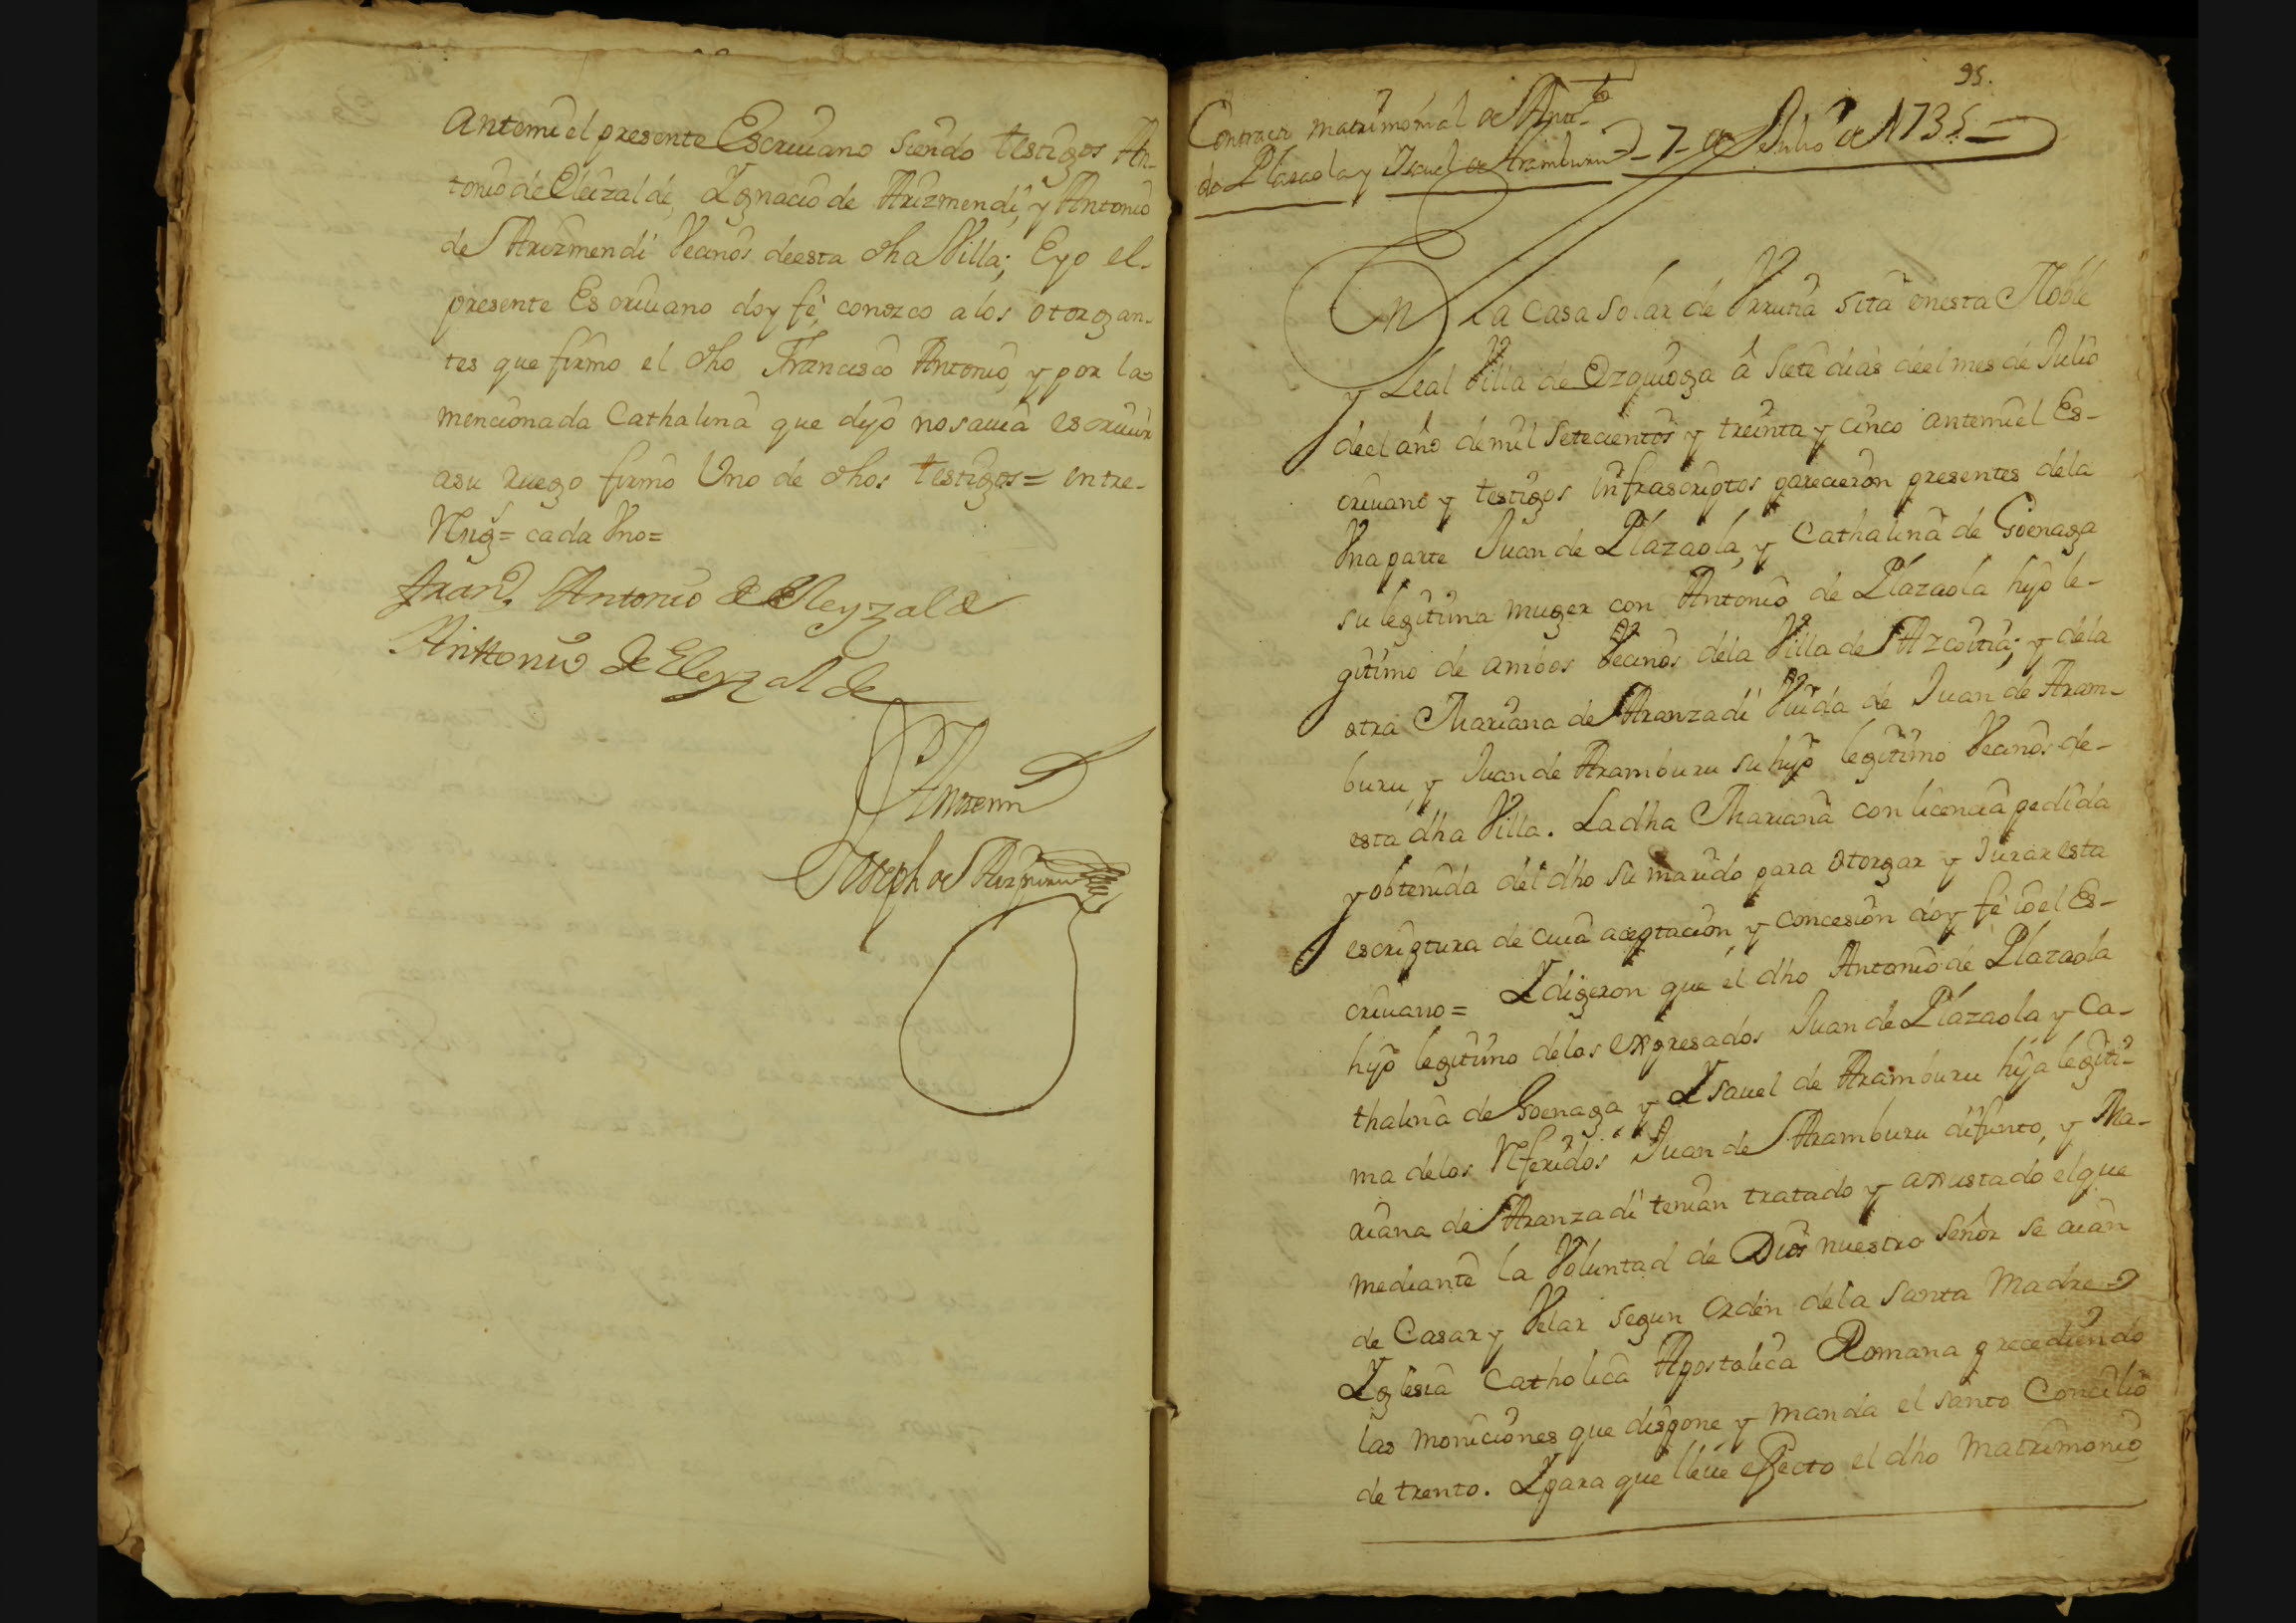 antemi el presente Escriuano siendo testigos An-
tonio de Eleizalde, Ygnacio de Arizmendi, y Antonio
de Arizmendi Vecinos deesta dha Villa; E yo el
presente Escriuano doy fé, conozco a los otorgan-
tes que firmo el dho Francisco Antonio, y por la
mencionada Cathalina que dijo no sauia escriuir
asu ruego firmo Uno de dhos testigos = entre-
Rng = cada Vno =
Fran. Antonio de Eleyzalde
Anttonio de Eleyzalde
Antemi
Joseph de Aizpuru
95.
Contracto matrimonial de Anto
de Plazaola y Isauel de Aramburu - 7 - de Julio de 1735
En La Casa Solar de Vrrutia sita enesta Noble
y Leal Villa de Ezquioga â siete dias deel mes de Julio
deel año de mil setecientos y treinta y cinco antemi el Es-
criuano y testigos infrascriptos parecieron presentes dela
Vna parte Juan de Plazaola, y Cathalina de Goenaga
su legitima muger con Antonio de Plazaola hijo le-
gitimo de ambos Vecinos dela Villa de Azcoitia; y dela
otra Mariana de Aranzadi Viuda de Juan de Aram-
buru, y Juan de Aramburu su hijo legitimo Vecinos de-
esta dha Villa. La dha Mariana con licencia pedida
y obtenida del dho su marido para otorgar y Jurar esta
escriptura de cuia aceptacion y concesion doy fé io el Es-
criuano = Y digeron que el dho Antonio de Plazaola
hijo legitimo delos expresados Juan de Plazaola y Ca-
thalina de Goenaga, y Ysauel de Aramburu hija legiti-
ma delos Rferidos Juan de Aramburu difunto, y Ma-
riana de Aranzadi tenian tratado y axustado el que
mediante la Voluntad de Dios nuestro señor se auian
de Casar y Velar segun orden dela santa Madre
Yglesia Catholica Apostolica Romana precediendo
las moniciones que dispone y manda el santo Concilio
de trento. Y para que lleue effecto el dho Matrimonio